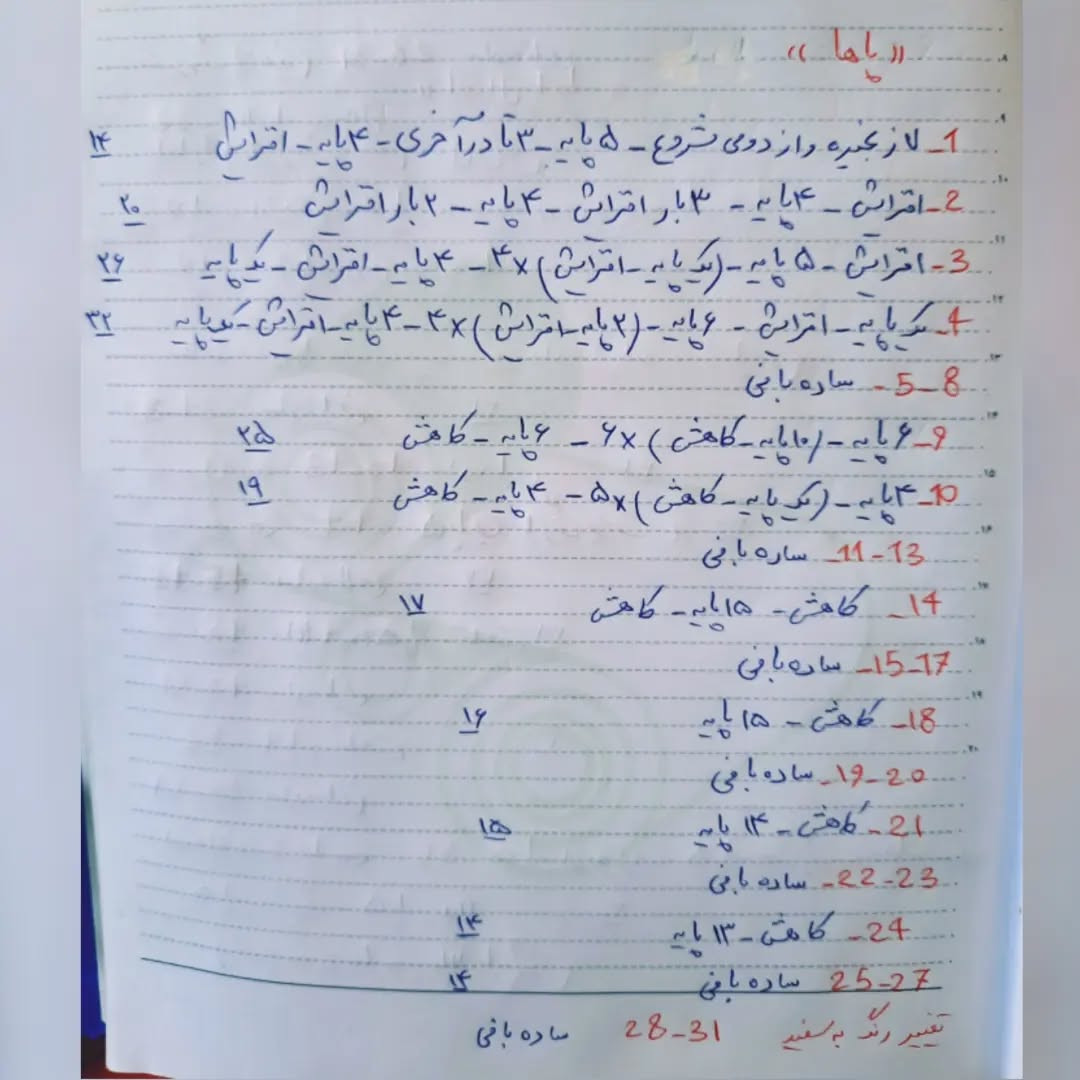 «پاها»
1- ۷ زنجیره و از دومی شروع - ۵ پایه - ۳ تا در آخری - ۴ پایه - افزایش ۱۴
2- افزایش - ۴ پایه - ۳ بار افزایش - ۴ پایه - ۲ بار افزایش ۲۰
3- افزایش - ۵ پایه - (یک پایه - افزایش) ×۴ - ۴ پایه - افزایش - یک پایه ۲۶
4- یک پایه - افزایش - ۶ پایه - (۲ پایه - افزایش) ×۴ - ۴ پایه - افزایش - یک پایه ۳۲
5-8 - ساده بافی
9- ۶ پایه - (۱۰ پایه - کاهش) ×۶ - ۶ پایه - کاهش ۲۵
10- ۴ پایه - (یک پایه - کاهش) ×۵ - ۴ پایه - کاهش ۱۹
11-13 - ساده بافی
14- کاهش - ۱۵ پایه - کاهش ۱۷
15-17 - ساده بافی
18- کاهش - ۱۵ پایه ۱۶
19-20 - ساده بافی
21- کاهش - ۱۴ پایه ۱۵
22-23 - ساده بافی
24- کاهش - ۱۳ پایه ۱۴
25-27 ساده بافی ۱۴
تغییر رنگ به سفید 28-31 ساده بافی